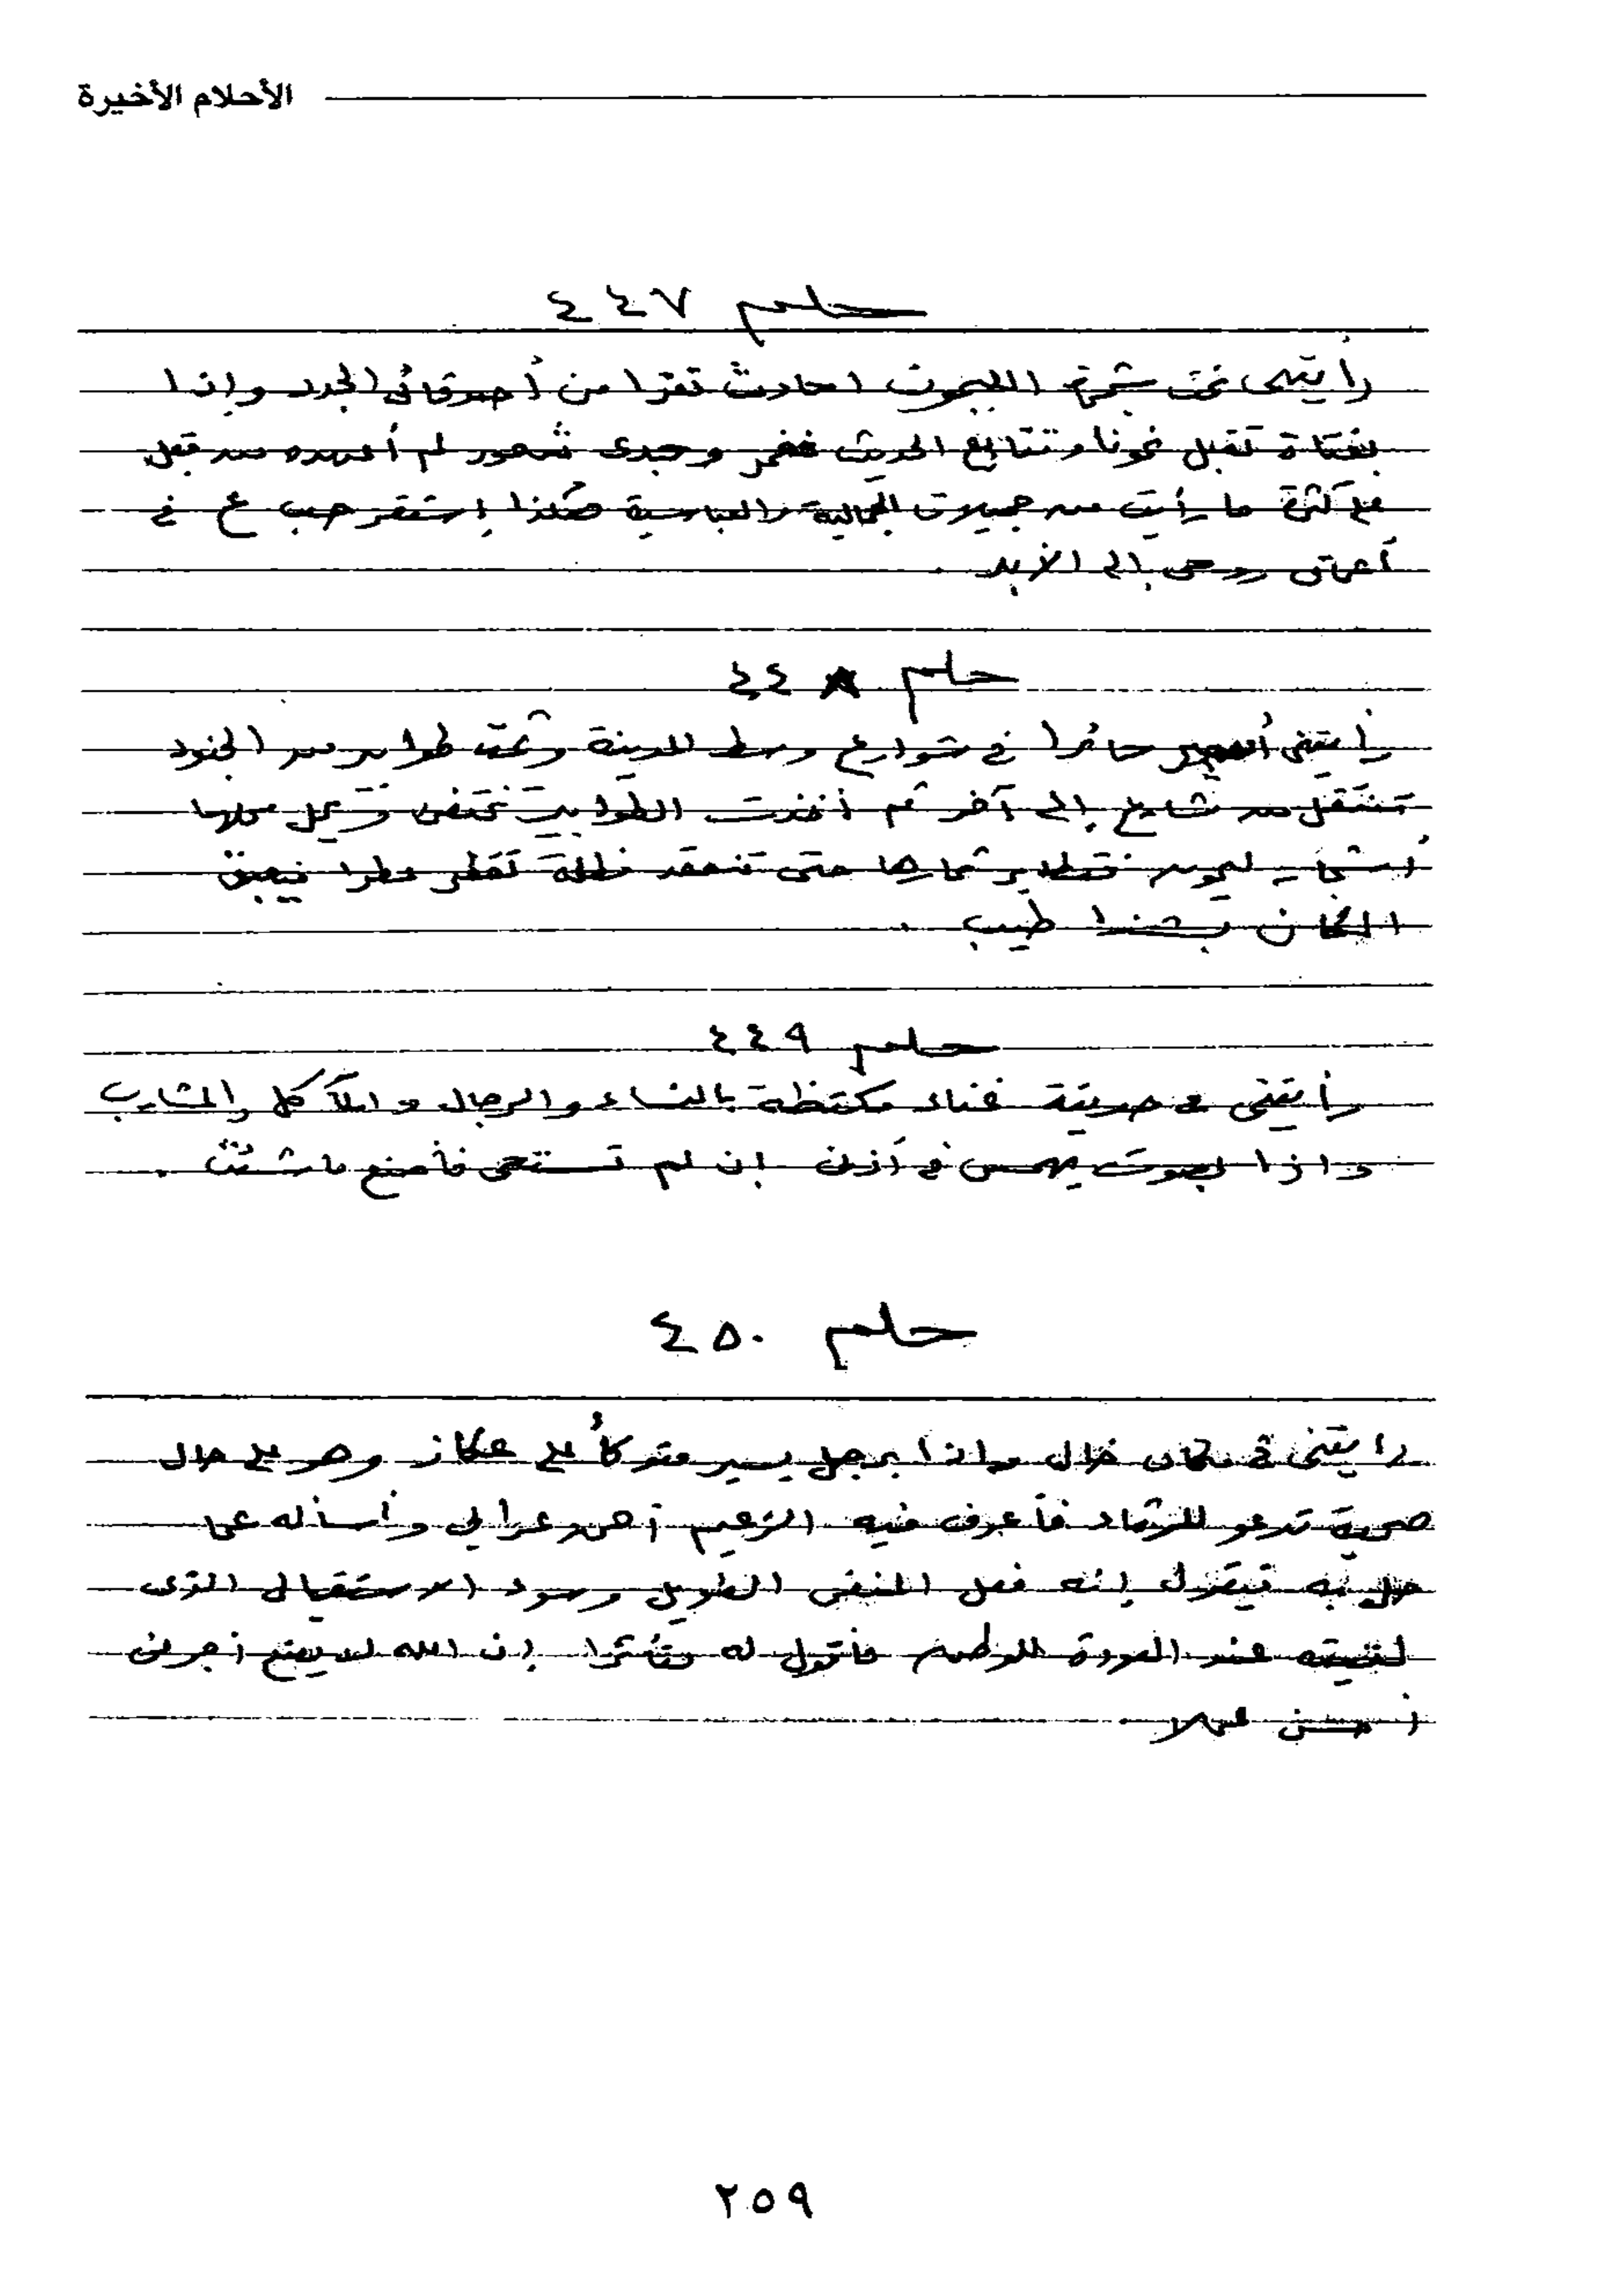 الأحلام الأخيرة
حلم ٤٤٧
رأيتنى تحت شجرة الليمون احادث نفرا من أصدقائى الجدد وإذا
بفتاة تقبل نحونا وتتابع الحديث فغمر وجدى شعور لم أعهده من قبل
على كثرة ما رأيت من جميلات الجمالية والعباسية هكذا إستقر حب ع فى
أعماق روحى إلى الأبد .
حلم ٤٤٨
رأيتنى أسير حائرا فى شوارع وسط المدينة وثمة طوابير من الجنود
تنتقل من شارع إلى آخر ثم أخذت الطوابير تختفى وتحل محلها
أشجار ليمون تتطاير ثمارها حتى تنعقد مظلة تقطر عطرا فيعبق
المكان بشذا طيب .
حلم ٤٤٩
رأيتنى فى حديقة غناء مكتظة بالنساء والرجال والمآكل والمشارب
وإذا بصوت يهمس فى أذنى إن لم تستحى فأصنع ما شئت .
حلم ٤٥٠
رايتنى فى مكان خال وإذا برجل يسير متوكأ على عكاز وهو على حال
صحية تدعو للرثاء فأعرف فيه الزعيم أحمد عرابى وأسأله عما
حل به فيقول إنه فعل المنفى الطويل وسوء الاستقبال الذى
لقيته عند العودة للوطن فأقول له متأثرا إن الله لا يضيع أجر من
أحسن عملا
٢٥٩